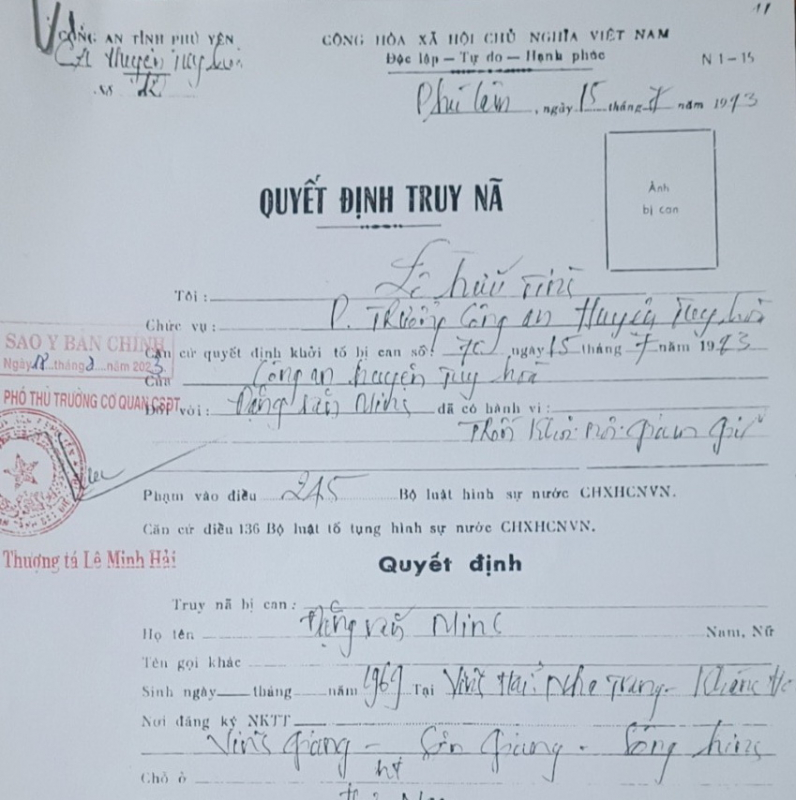 11
CÔNG AN TỈNH PHÚ YÊN
CA Huyện Tuy Hòa
CỘNG HÒA XÃ HỘI CHỦ NGHĨA VIỆT NAM
Độc lập — Tự do — Hạnh phúc
N 1-15
Phú Lâm, ngày 15 tháng 7 năm 1993
Ảnh
bị can
QUYẾT ĐỊNH TRUY NÃ
Tôi: Lê Hữu
Chức vụ: P. Trưởng Công an Huyện Tuy Hòa
SAO Y BẢN CHÍNH
Ngày 18 tháng 2 năm 2023
PHÓ THỦ TRƯỞNG CƠ QUAN CSĐT
Thượng tá Lê Minh Hải
Căn cứ quyết định khởi tố bị can số: 70 ngày 15 tháng 7 năm 1993
Của Công an huyện Tuy Hoà
Đối với: Đặng Văn Minh đã có hành vi:
Trốn khỏi nơi giam giữ
Phạm vào điều 245 Bộ luật hình sự nước CHXHCNVN.
Căn cứ điều 136 Bộ luật tố tụng hình sự nước CHXHCNVN.
Quyết định
Truy nã bị can:
Họ tên Đặng Văn Minh Nam, Nữ
Tên gọi khác
Sinh ngày tháng năm 1969 Tại Vĩnh Hải. Nha Trang - Khánh Hò
Nơi đăng ký NKTT
Giang - Sơn Giang - Sông Hinh
Chỗ ở